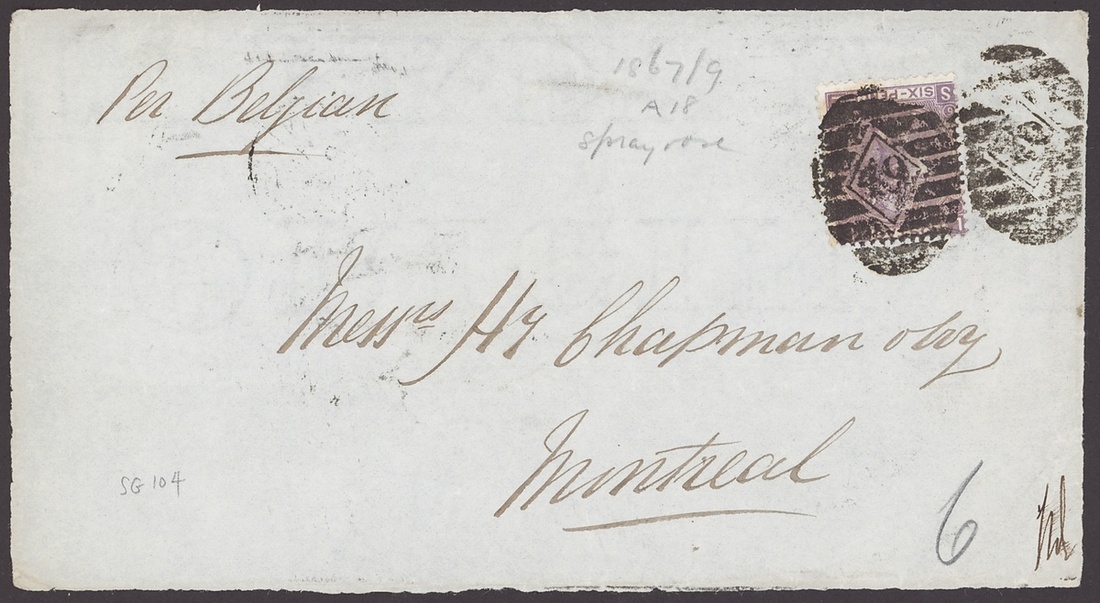 Per Belgian
1867/9
A18
Spray rose
SIX-PE
S
Messrs Hy Chapman & Cy
Montreal
SG 104
6